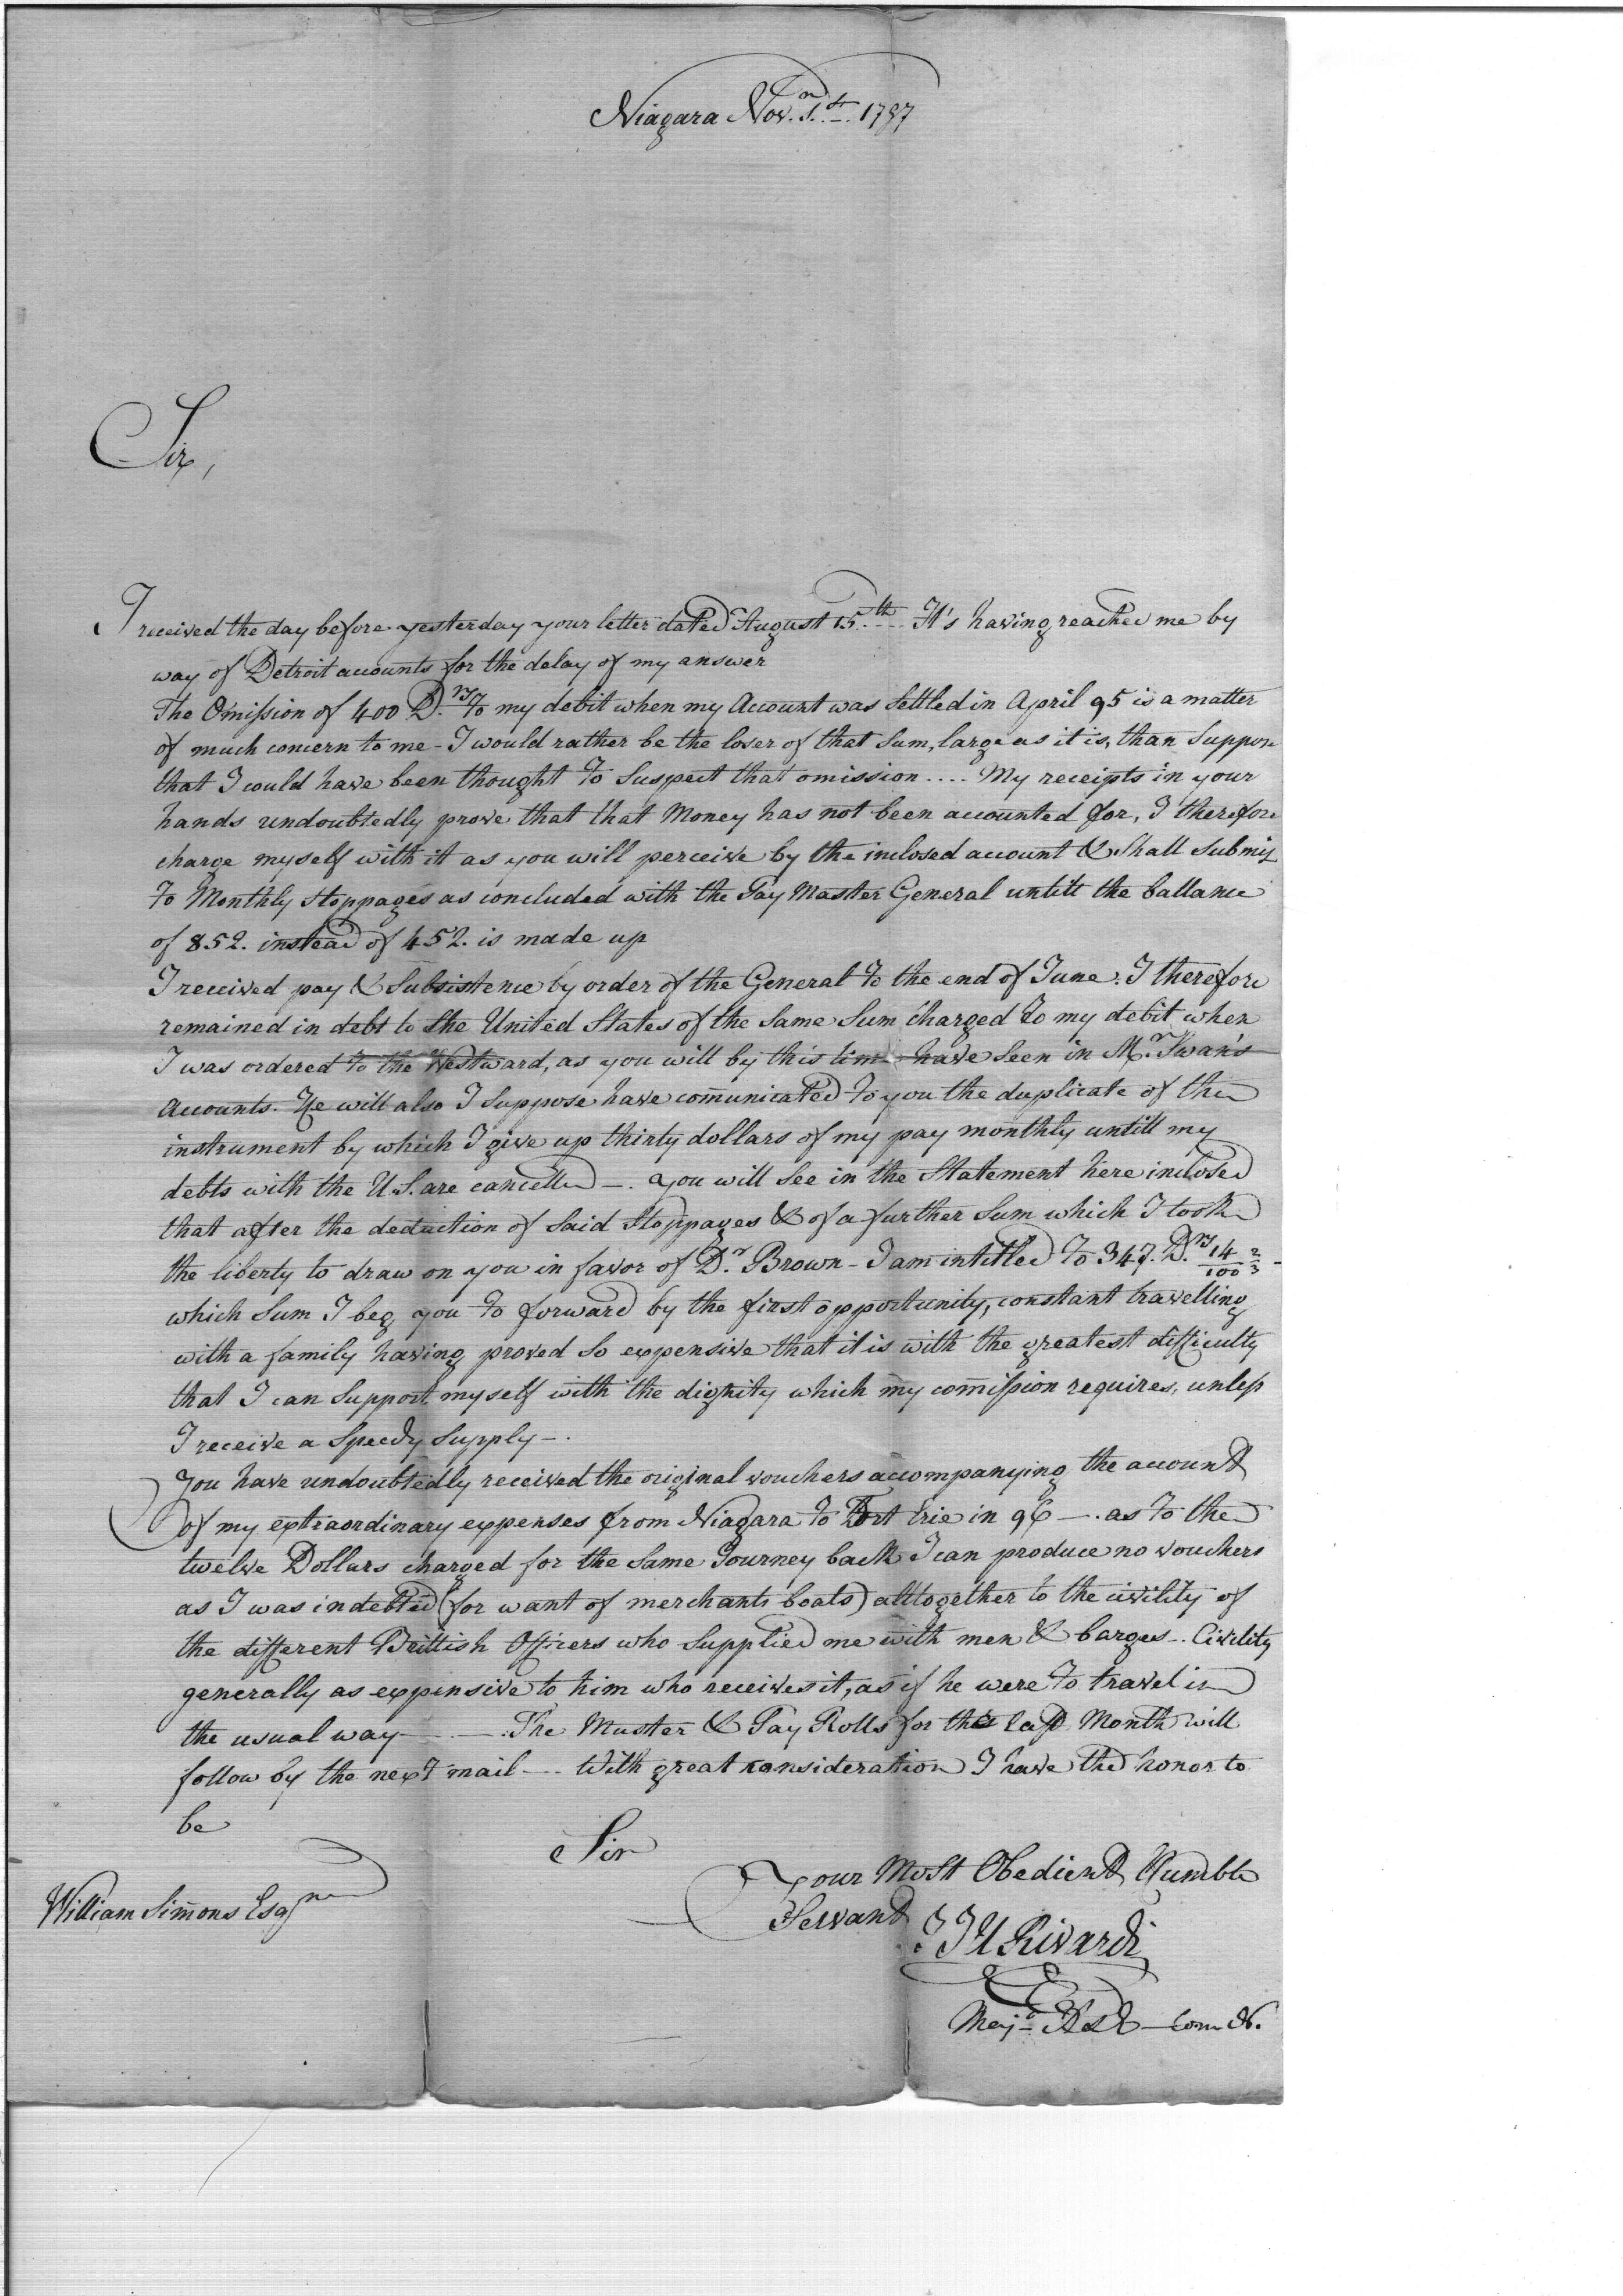 Niagara Nov. 1st 1797
Sir,
I received the day before yesterday your letter dated August 15th .... It's having reached me by
way of Detroit accounts for the delay of my answer
The Omission of 400 D.rs to my debit when my Account was Settled in April 95 is a matter
of much concern to me - I would rather be the loser of that Sum, large as it is, than Suppose
that I could have been thought to Suspect that omission .... My receipts in your
hands undoubtedly prove that that Money has not been accounted for, I therefore
charge myself with it as you will perceive by the inclosed account & Shall Submit
to Monthly stoppages as concluded with the Pay Master General untill the ballance
of 852. instead of 452. is made up
I received pay & Subsistence by order of the General to the end of June. I therefore
remained in debt to the United States of the Same Sum charged to my debit when
I was ordered to the Westward, as you will by this time have Seen in Mr. Swan's
Accounts. He will also I Suppose have communicated to you the duplicate of the
instrument by which I give up thirty dollars of my pay monthly untill my
debts with the U.S. are cancelled -. you will See in the Statement here inclosed
that after the deduction of Said Stoppages & of a further Sum which I took
the liberty to draw on you in favor of Dr. Brown - I am intitled to 347. D.rs 14/100 2/3 -
which Sum I beg you to forward by the first opportunity, constant travelling
with a family having proved So expensive that it is with the greatest difficulty
that I can Support myself with the dignity which my commission requires, unless
I receive a Speedy Supply -.
You have undoubtedly received the original vouchers accompanying the account
of my extraordinary expenses from Niagara to Fort Erie in 96 -. as to the
twelve Dollars charged for the Same Journey back I can produce no vouchers
as I was indebted (for want of merchants boats) alltogether to the civility of
the different Brittish Officers who Supplied me with men & barges -. Civility
generally as expensive to him who receives it, as if he were to travel in
the usual way - -. The Muster & Pay Rolls for the last Month will
follow by the next mail -. With great consideration I have the honor to
be
Sir
Your Most Obedient Humble
Servant
William Simmons Esqre
J J U Rivardi
Majr A & E - Com N.